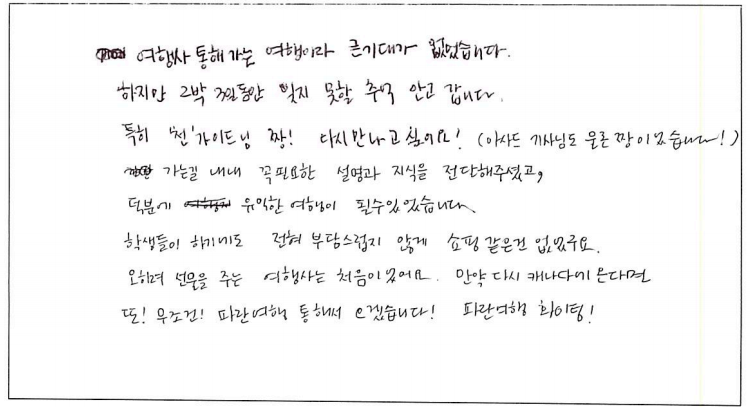 여행사 통해 가는 여행이라 큰기대가 없었습니다.
하지만 2박 3일동안 잊지 못할 추억 안고 갑니다.
특히 '천'가이드님 짱! 다시만나고싶어요! (아사드 기사님도 물론 짱이었습니다!)
가는길 내내 꼭필요한 설명과 지식을 전달해주셨고,
덕분에 유익한 여행이 될수있었습니다.
학생들이 하기에도 전혀 부담스럽지 않게 쇼핑 같은건 없었구요.
오히려 선물을 주는 여행사는 처음이었어요. 만약 다시 캐나다에 온다면
또! 무조건! 파란여행 통해서 오겠습니다! 파란여행 화이팅!